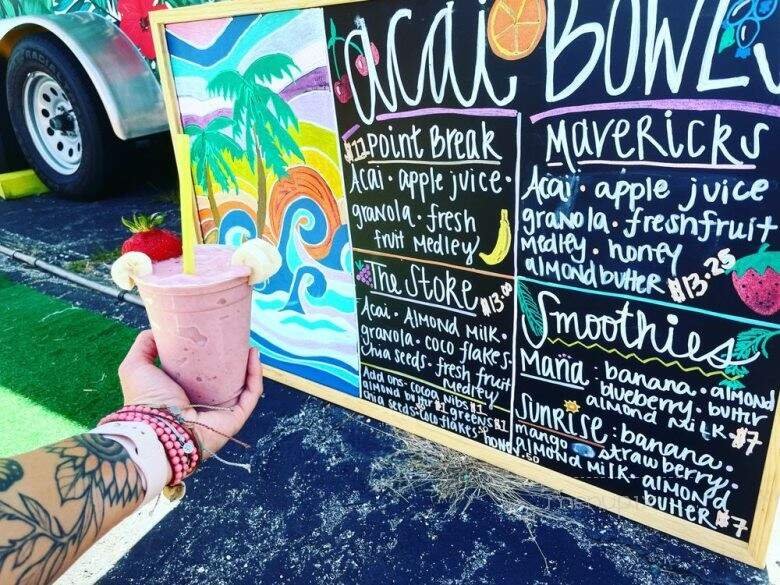 acai Bowls
$12 point Break
Acai • apple juice •
granola • fresh
fruit Medley
The Stoke $13.00
Acai • Almond Milk •
granola • coco flakes •
Chia seeds • fresh fruit
Medley
Add ons - cocoa Nibs $1
almond butter $1 greens $1
chia seeds • coco flakes • honey .50
Mavericks
Acai • apple juice
granola • fresh fruit
Medley • honey
almond butter $13.25
Smoothies
Mana : banana • almond
blueberry • butter
almond milk • $7
Sunrise : banana •
mango • strawberry •
Almond milk • almond
butter $7